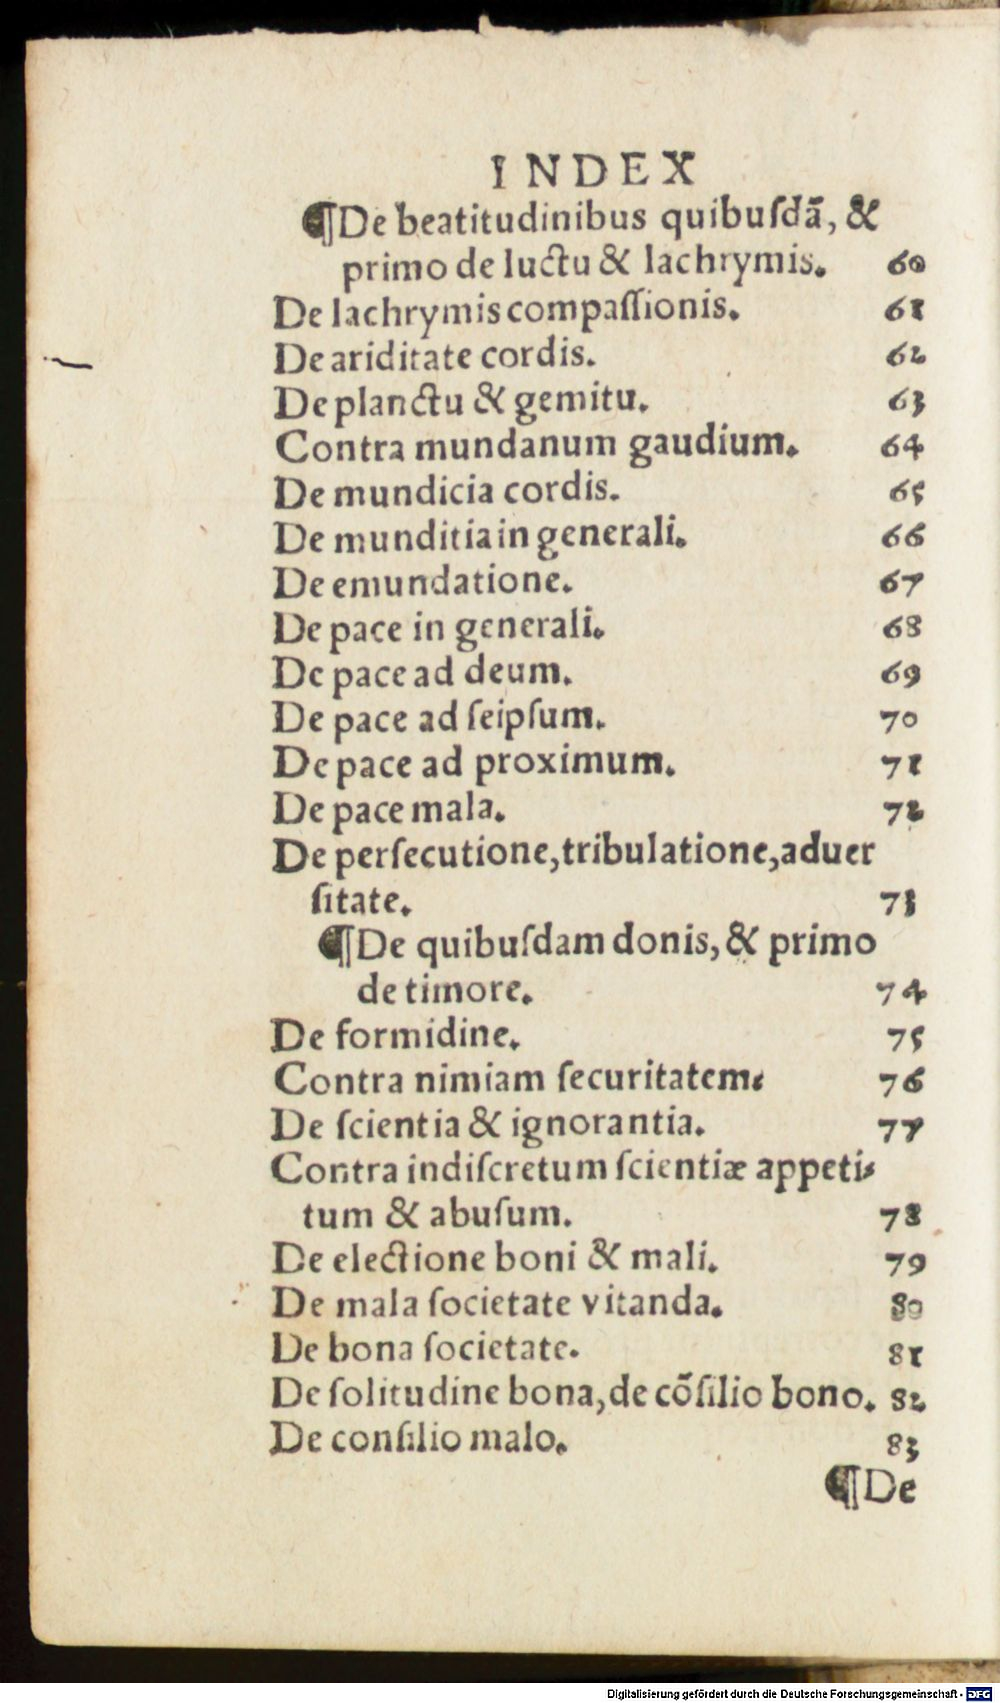 INDEX
¶De beatitudinibus quibuſdã, &
primo de luctu & lachrymis. 60
De lachrymis compaſſionis. 61
De ariditate cordis. 62
De planctu & gemitu. 63
Contra mundanum gaudium. 64
De mundicia cordis. 65
De munditia in generali. 66
De emundatione. 67
De pace in generali. 68
De pace ad deum. 69
De pace ad ſeipſum. 70
De pace ad proximum. 71
De pace mala. 72
De perſecutione, tribulatione, aduer
ſitate. 73
¶De quibuſdam donis, & primo
de timore. 74
De formidine. 75
Contra nimiam ſecuritatem. 76
De ſcientia & ignorantia. 77
Contra indiſcretum ſcientiæ appeti-
tum & abuſum. 78
De electione boni & mali. 79
De mala ſocietate vitanda. 80
De bona ſocietate. 81
De ſolitudine bona, de cõſilio bono. 82
De conſilio malo. 83
¶De
Digitalisierung gefördert durch die Deutsche Forschungsgemeinschaft - DFG